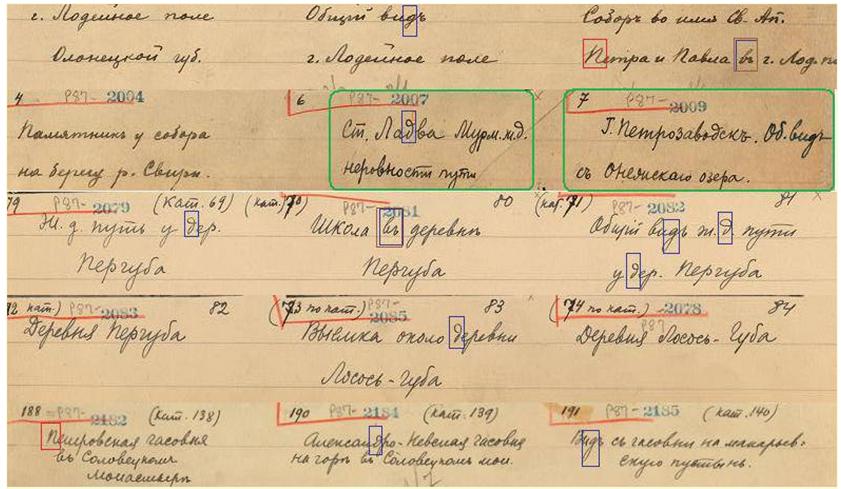 г. Лодейное поле
Олонецкой губ.
Общій видъ
г. Лодейное поле
Соборъ во имя Св. Ап.
Петра и Павла въ г. Лод. по
4 P87- 2004
Памятникъ у собора
на берегу р. Свири.
6 P87- 2007
Ст. Ладва Мурм. ж. д.
неровности пути
7 P87- 2009
Г. Петрозаводскъ. Об. видъ
съ Онежскаго озера.
79 P87- 2079 (Кат. 69)
Ж. д. путь у дер.
Пергуба
(кат. 70) P87- 2081 80
Школа въ деревнѣ
Пергуба
(кат. 71) P87- 2082 81
Общій видъ ж. д. пути
у дер. Пергуба
72 кат.) P87- 2083 82
Деревня Пергуба
(73 по кат.) P87- 2085 83
Выемка около деревни
Лосось-Губа
(74 по кат.) 2078 84
P87
Деревня Лосось-Губа
188 P87- 2182 (Кат. 138)
Петровская часовня
въ Соловецкомъ
монастырѣ
190 P87- 2184 (кат. 139)
Александро-Невская часовня
на горѣ въ Соловецком мон.
191 P87- 2185 (кат. 140)
Видъ съ часовни на макарьев-
скую пустынь.